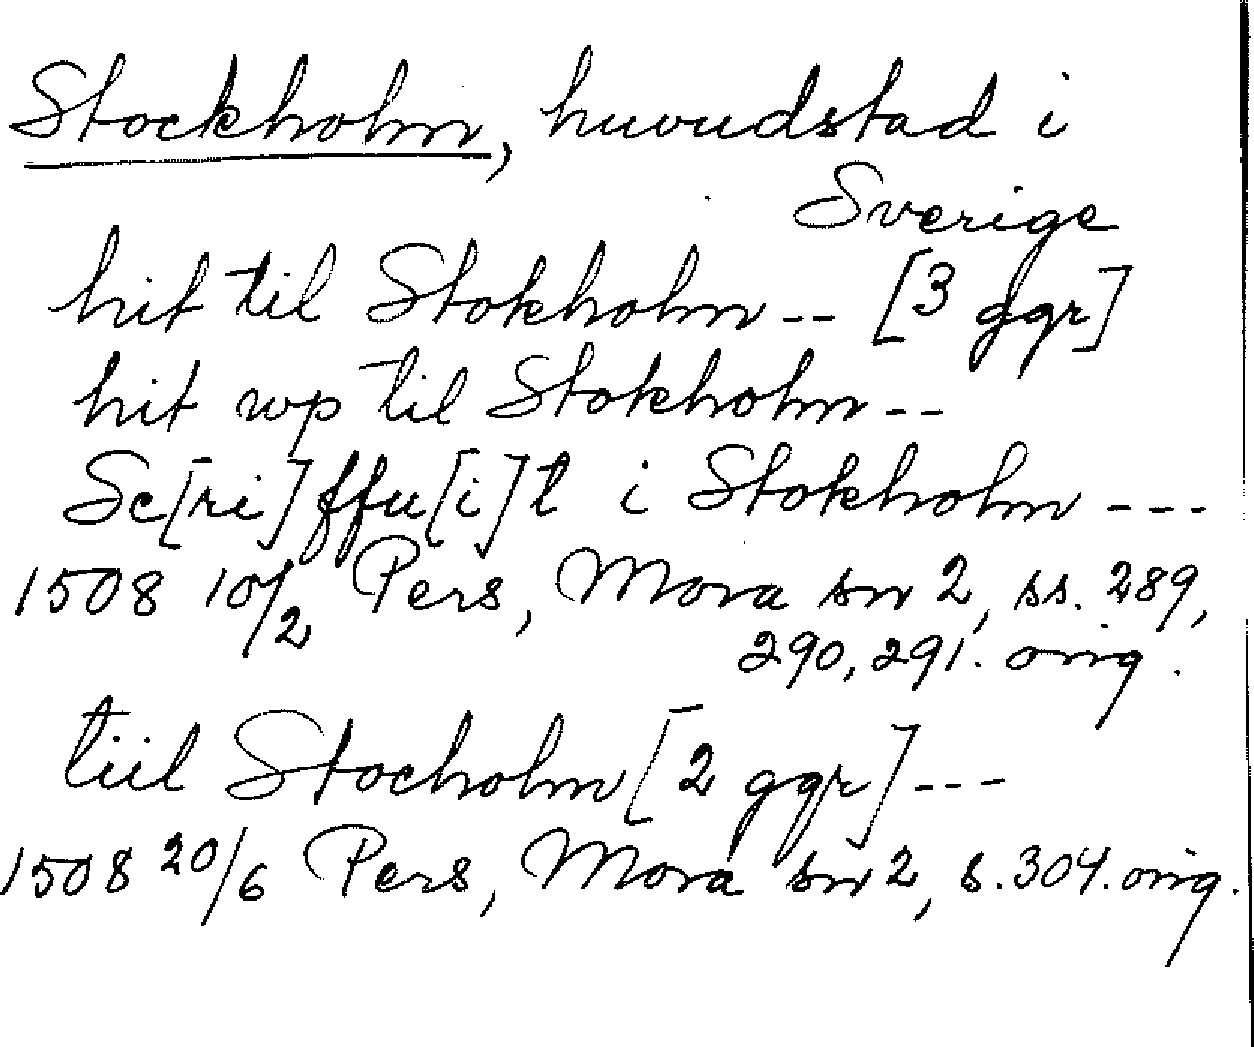 Stockholm, huvudstad i
Sverige
hit til Stokholm -- [3 ggr]
hit wp til Stokholm --
Sc[ri]ffu[i]t i Stokholm ---
1508 10/2 Pers, Mora sn 2, ss. 289,
290, 291. orig.
tiil Stocholm [2 ggr] ---
1508 20/6 Pers, Mora sn 2, s. 304. orig.